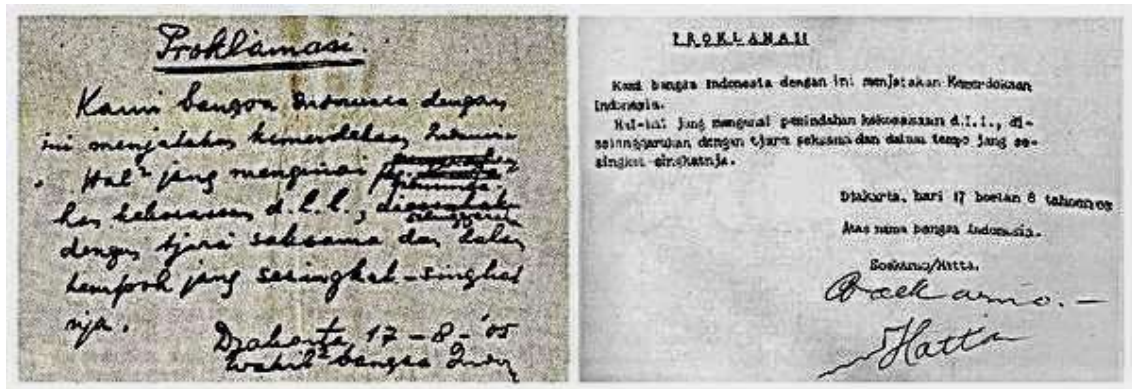 Proklamasi.
Kami bangsa Indonesia dengan
ini menjatakan kemerdekaan Indonesia
Hal² jang mengenai
kekoeasaan d.l.l.,
dengan tjara saksama dan dalam
tempoh jang sesingkat-singkat
nja.
Djakarta 17-8-'05
Wakil² bangsa Indon
PROKLAMASI
Kami bangsa Indonesia dengan ini menjatakan Kemerdekaan
Indonesia.
Hal-hal jang mengenai pemindahan kekoeasaan d.l.l., di-
selenggarakan dengan tjara seksama dan dalam tempo jang se-
singkat-singkatnja.
Djakarta, hari 17 boelan 8 tahoen 05
Atas nama bangsa Indonesia.
Soekarno/Hatta.
Soekarno.-
Hatta